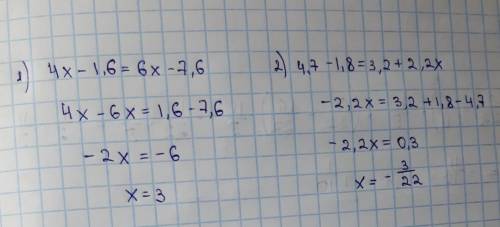 1) 4x - 1,6 = 6x - 7,6
4x - 6x = 1,6 - 7,6
-2x = -6
x = 3
2) 4,7 - 1,8 = 3,2 + 2,2x
-2,2x = 3,2 + 1,8 - 4,7
-2,2x = 0,3
x = -3/22